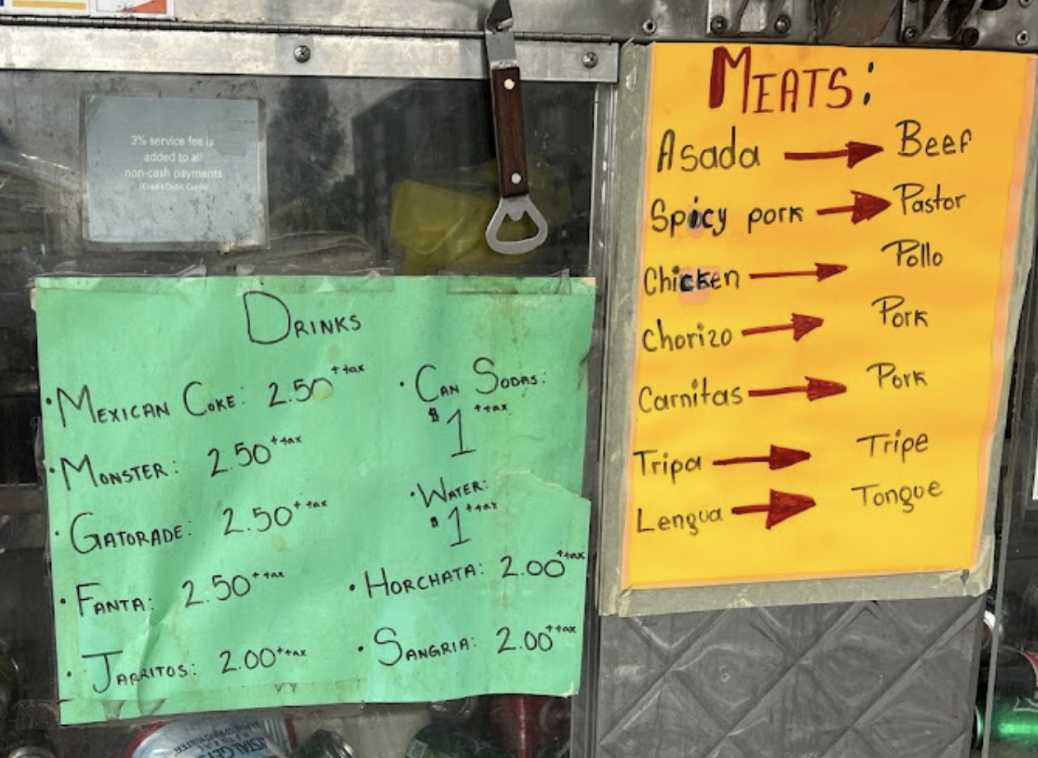 3% service fee is
added to all
non-cash payments
(Credit/Debit Cards)
DRINKS
• MEXICAN COKE: 2.50 +tax
• MONSTER: 2.50 +tax
• GATORADE: 2.50 +tax
• FANTA: 2.50 +tax
• JARRITOS: 2.00 +tax
• CAN SODAS:
$1 +tax
• WATER:
$1 +tax
• HORCHATA: 2.00 +tax
• SANGRIA: 2.00 +tax
MEATS:
Asada → Beef
Spicy pork → Pastor
Chicken → Pollo
Chorizo → Pork
Carnitas → Pork
Tripa → Tripe
Lengua → Tongue